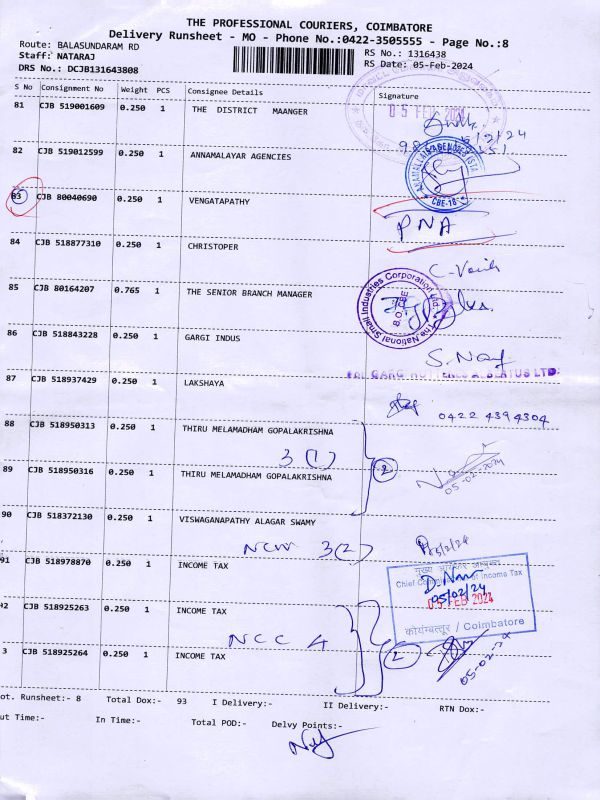 THE PROFESSIONAL COURIERS, COIMBATORE
Delivery Runsheet - MO - Phone No.:0422-3505555 - Page No.:8
Route: BALASUNDARAM RD RS No.: 1316438
Staff: NATARAJ RS Date: 05-Feb-2024
DRS No.: DCJB131643808
S No Consignment No Weight PCS Consignee Details Signature
81 CJB 519001609 0.250 1 THE DISTRICT MAANGER
05 FEB 2024
82 CJB 519012599 0.250 1 ANNAMALAYAR AGENCIES
CBE-18
83 CJB 80040690 0.250 1 VENGATAPATHY
PNA
84 CJB 518877310 0.250 1 CHRISTOPER
85 CJB 80164207 0.765 1 THE SENIOR BRANCH MANAGER
The National Small Industries Corporation Ltd.
86 CJB 518843228 0.250 1 GARGI INDUS
87 CJB 518937429 0.250 1 LAKSHAYA
0422 4394304
88 CJB 518950313 0.250 1 THIRU MELAMADHAM GOPALAKRISHNA
3 (1) 2
89 CJB 518950316 0.250 1 THIRU MELAMADHAM GOPALAKRISHNA
05-02-2024
90 CJB 518372130 0.250 1 VISWAGANAPATHY ALAGAR SWAMY
3(2)
91 CJB 518978870 0.250 1 INCOME TAX
मुख्य आयकर आयुक्त
Chief Commissioner of Income Tax
05/02/24
05 FEB 2024
कोयम्बत्तूर / Coimbatore
92 CJB 518925263 0.250 1 INCOME TAX
NCC 4
2
3 CJB 518925264 0.250 1 INCOME TAX
ot. Runsheet:- 8 Total Dox:- 93 I Delivery:- II Delivery:- RTN Dox:-
ut Time:- In Time:- Total POD:- Delvy Points:-